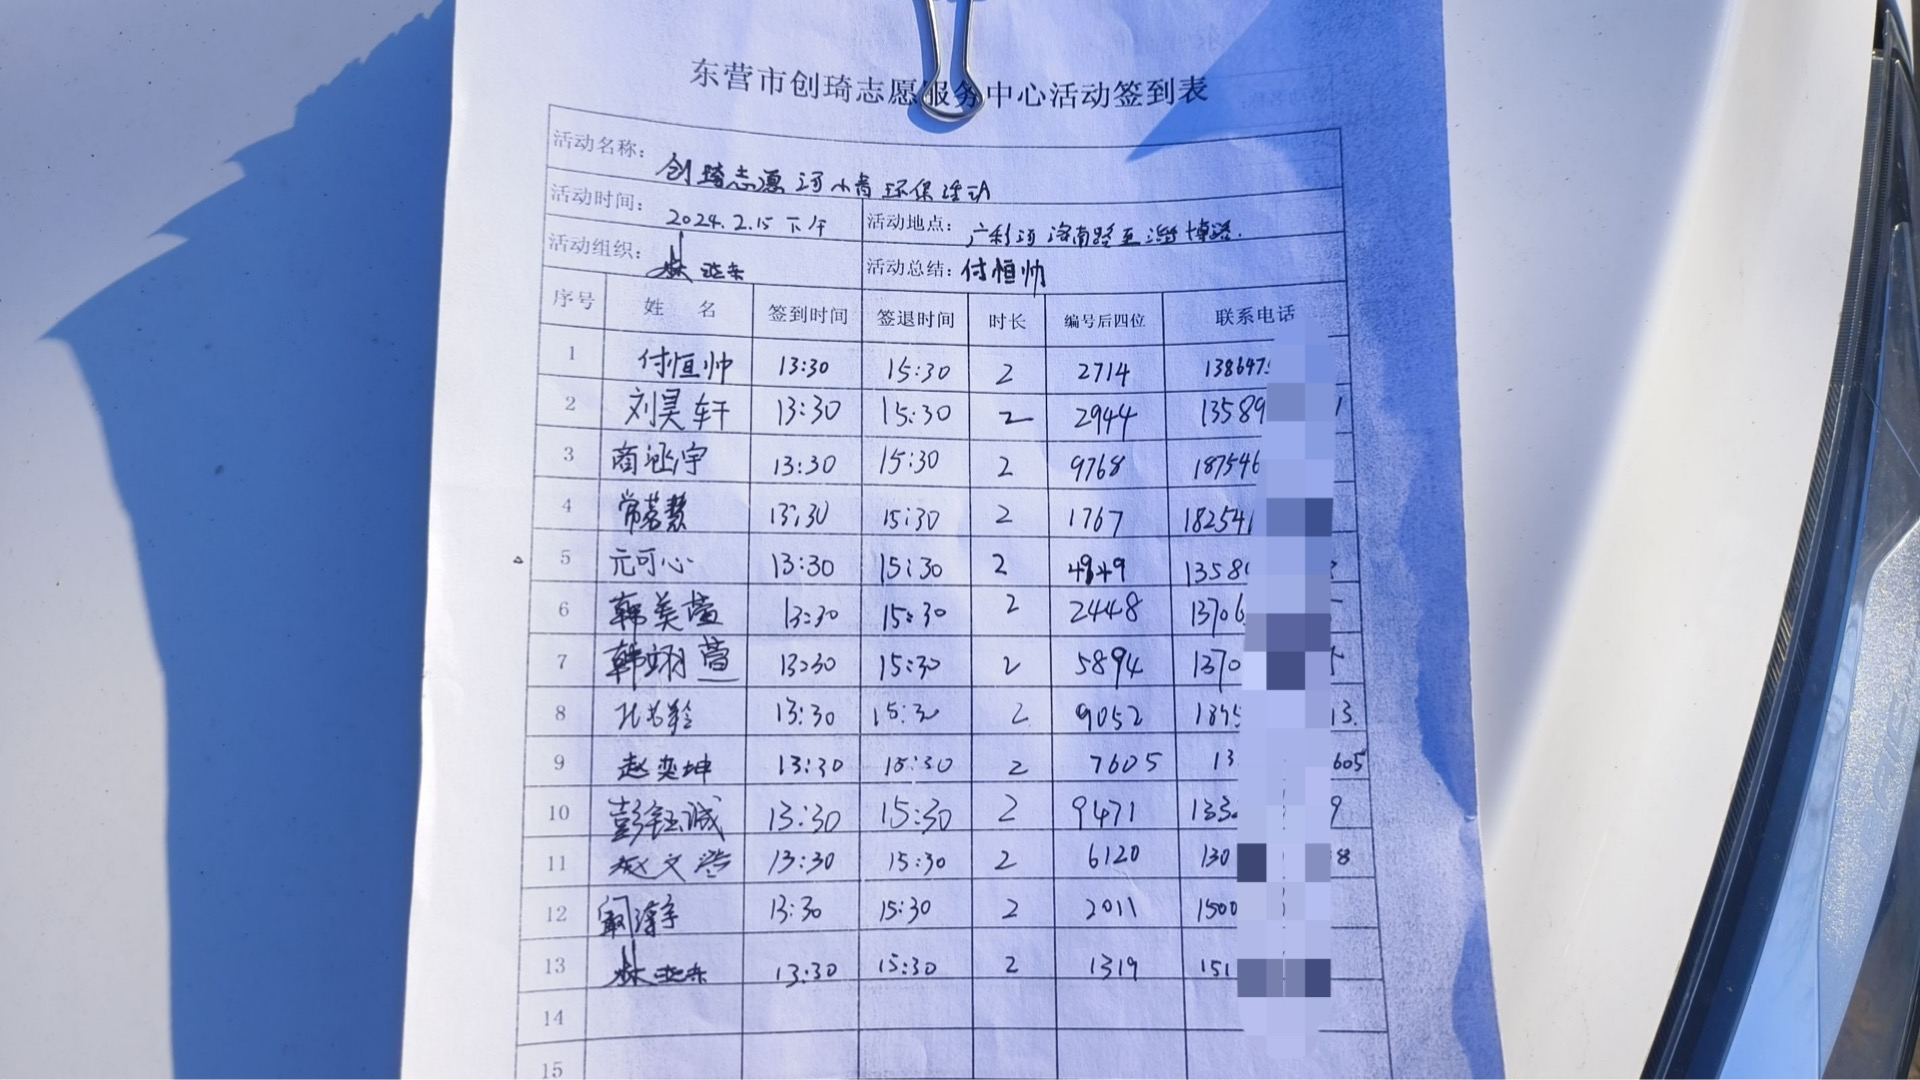 东营市创琦志愿服务中心活动签到表
活动名称： 创琦志愿河小青环保活动
活动时间： 2024.2.15 下午 活动地点： 广利河 济南路至淄博路.
活动组织： 活动总结： 付恒帅
序号 姓 名 签到时间 签退时间 时长 编号后四位 联系电话
1 付恒帅 13:30 15:30 2 2714 138647
2 刘昊轩 13:30 15:30 2 2944 13589 1
3 商涵宇 13:30 15:30 2 9768 187546
4 常茗慧 13:30 15:30 2 1767 182541
5 元可心 13:30 15:30 2 4949 1358
6 韩美萱 13:30 15:30 2 2448 13706
7 韩翊萱 13:30 15:30 2 5894 1370
8 13:30 15:30 2 9052 1895 13.
9 赵奕坤 13:30 15:30 2 7605 13 605
10 彭钰诚 13:30 15:30 2 9471 133 9
11 赵文 13:30 15:30 2 6120 130 8
12 13:30 15:30 2 2011 1500
13 13:30 15:30 2 1319 151
14
15